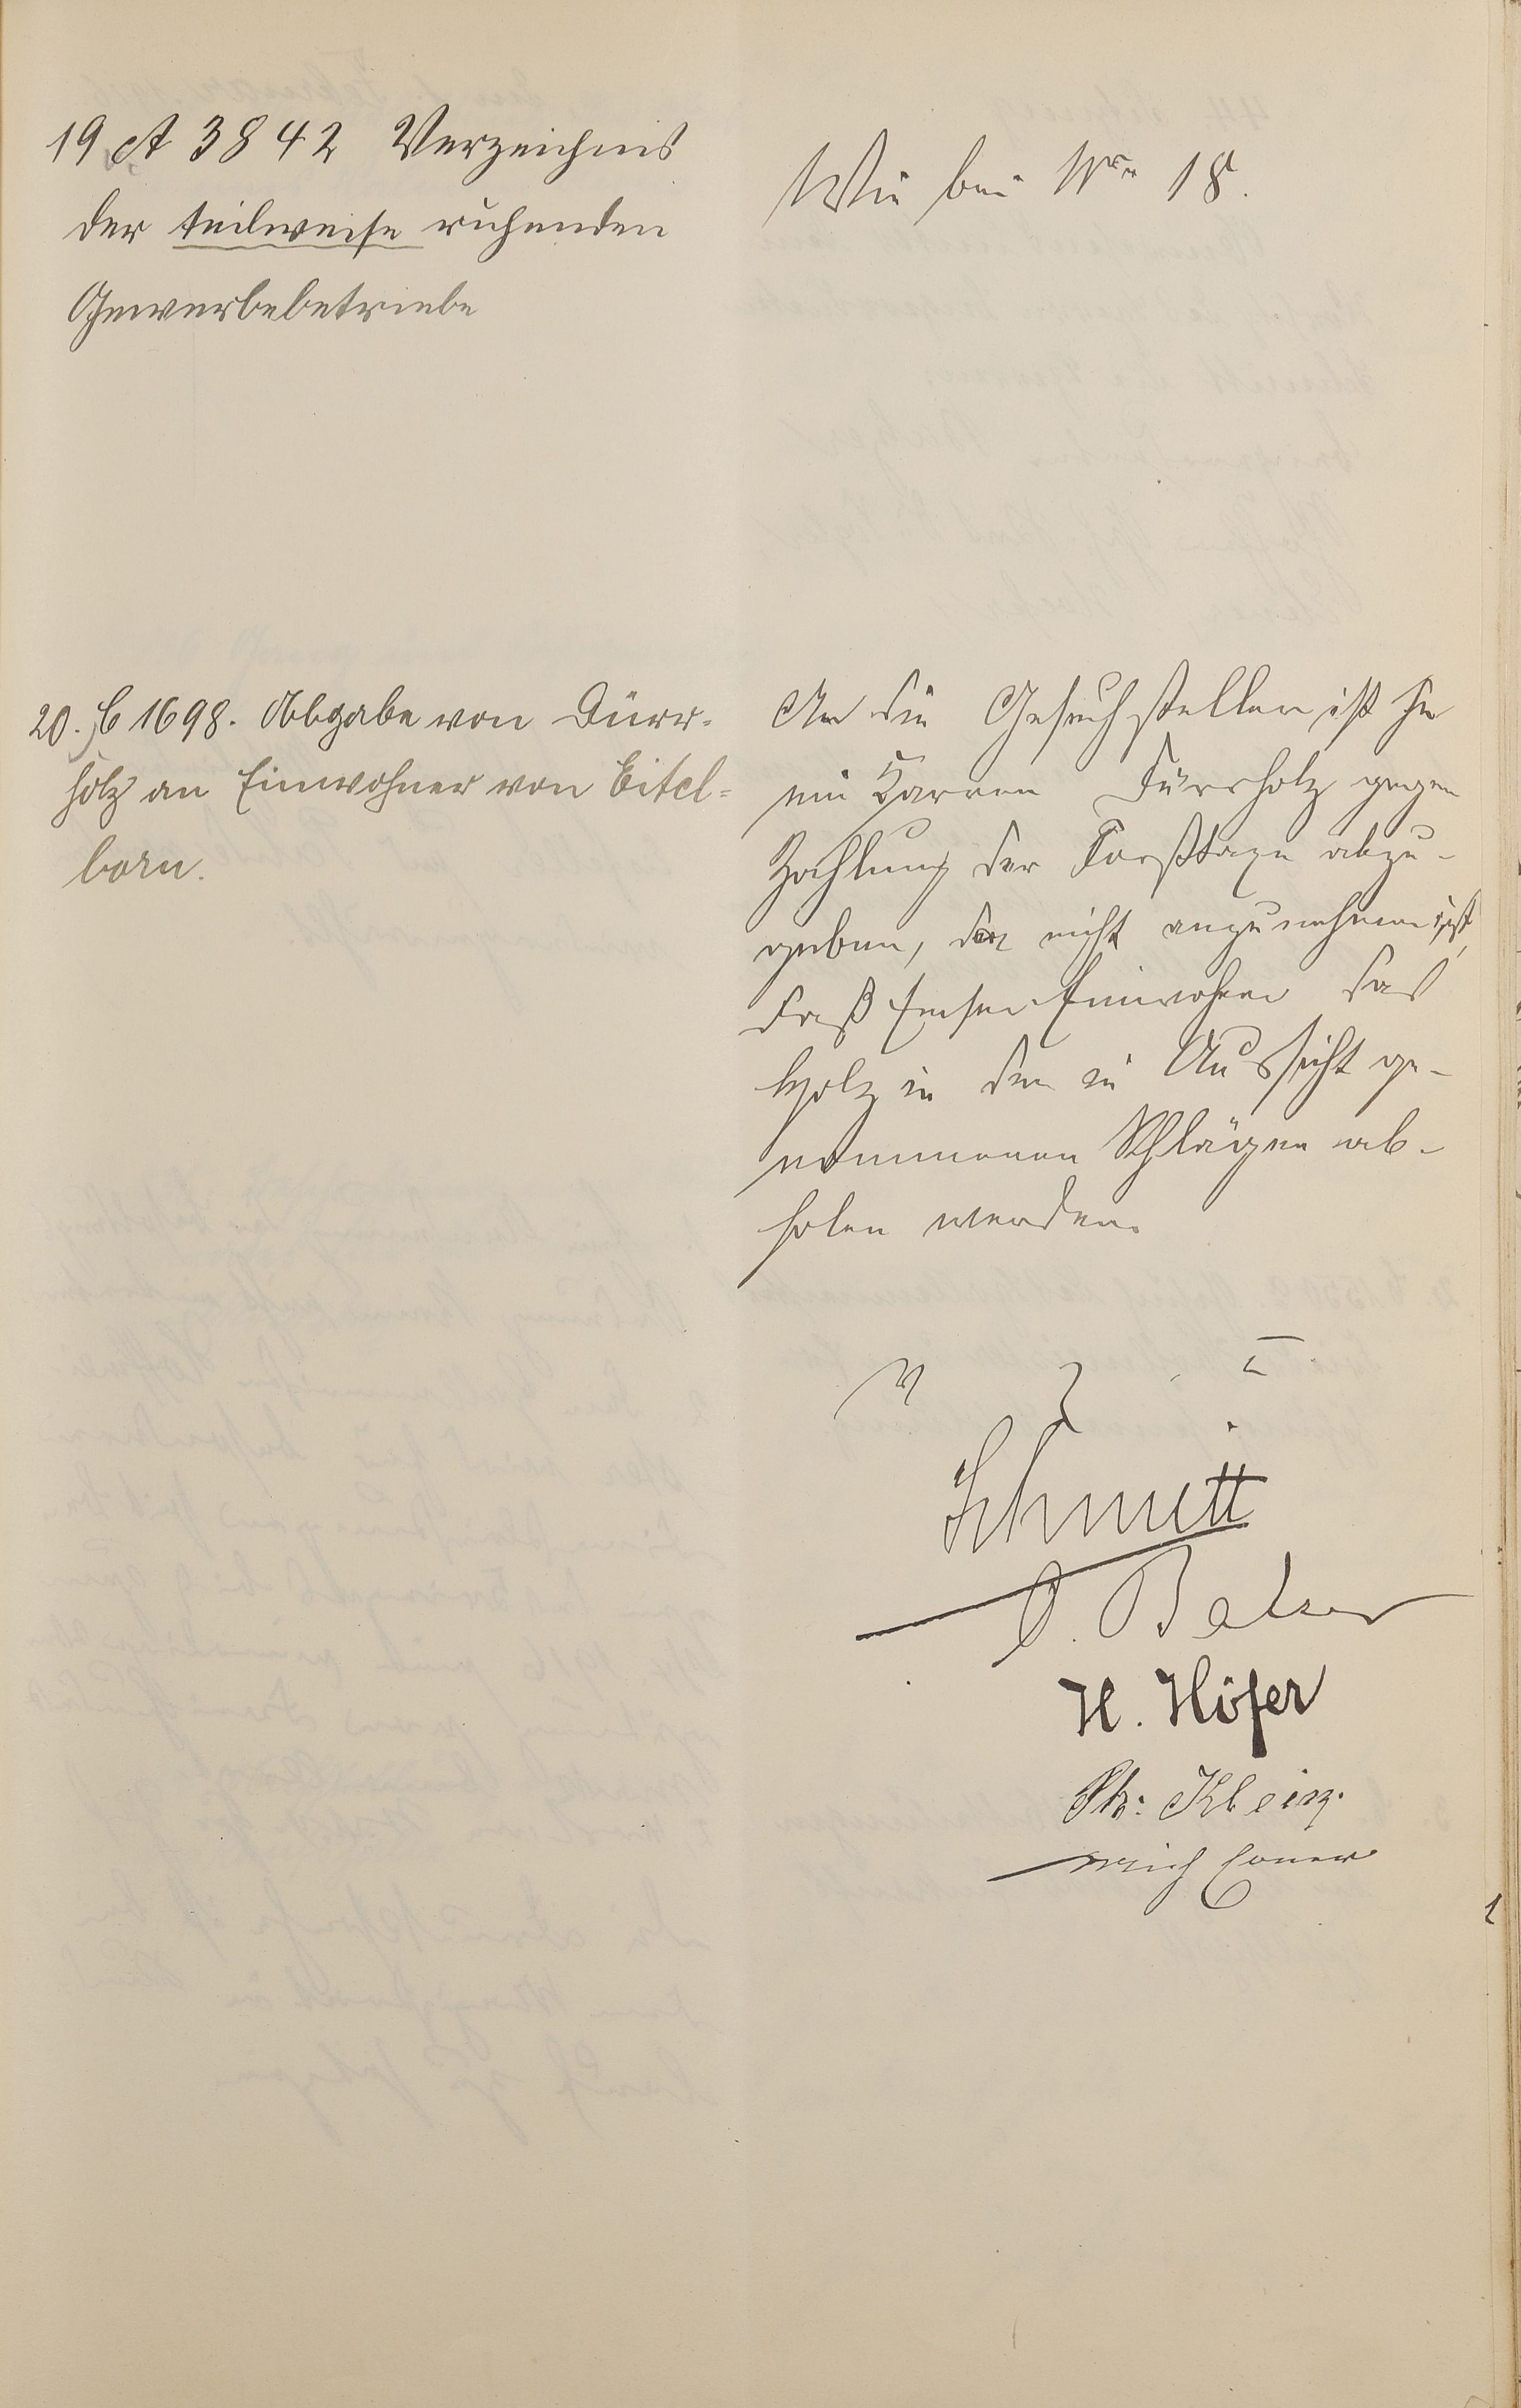 19 A 3842 Verzeichnis
der teilweise ruhenden
Gewerbebetriebe
Wie bei Nr. 18.
20. C 1698. Abgabe von Dürr-
holz an Einwohner von Eitel-
born.
An die Gesuchsteller ist je
ein Karren Dürrholz gegen
Zahlung der Forsttaxe abzu-
geben, da nicht anzunehmen ist,
daß Emser Einwohner das
Holz in den in Aussicht ge-
nommenen Schlägen ab-
holen werden.
v. g. u.
Schmitt
O. Balzer
H. Höfer
Ph: Klein.